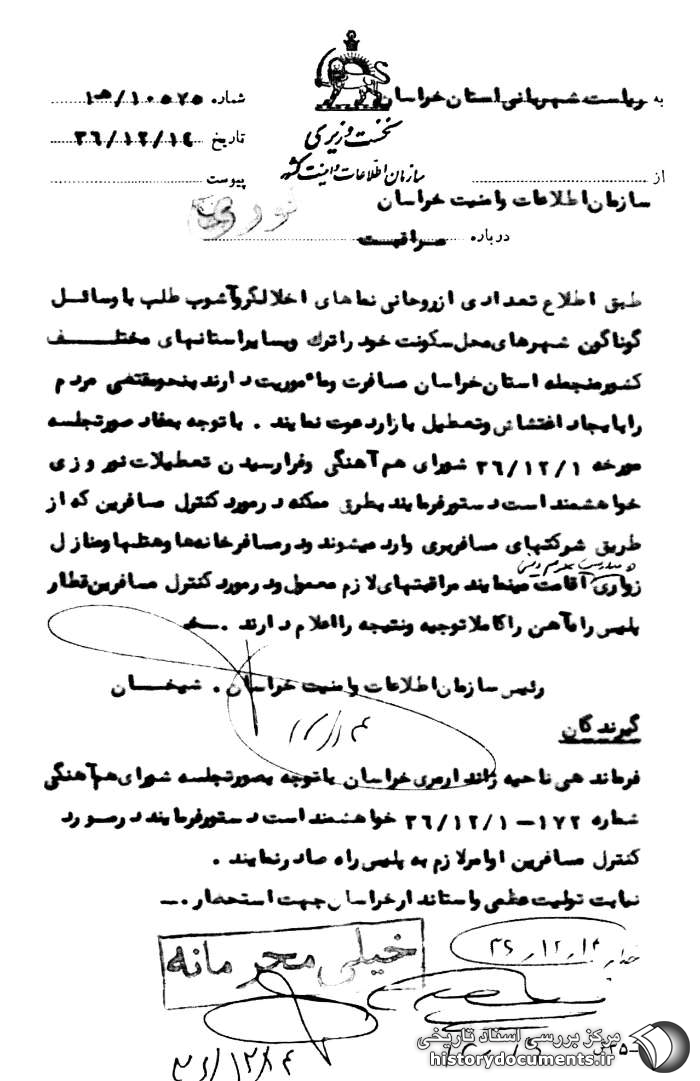 به ریاست شهربانی استان خراسان
شماره ۱۰۵۷۵/ه۱
نخست وزیری
تاریخ ۳۶/۱۲/۱۴
سازمان اطلاعات و امنیت کشور
از
پیوست
سازمان اطلاعات و امنیت خراسان
نوری
درباره مراقبت
طبق اطلاع تعدادی از روحانی نماهای اخلالگر و آشوب طلب با وسائل
گوناگون شهرهای محل سکونت خود را ترک و بسایر استانهای مختلف
کشور منجمله استان خراسان مسافرت و ماموریت دارند بنحو مقتضی مردم
را با یجاد اغتشاش و تعطیل بازار دعوت نمایند . با توجه بمفاد صورتجلسه
مورخه ۳۶/۱۲/۱ شورای هم آهنگی و فرارسیدن تعطیلات نوروزی
خواهشمند است دستور فرمایند بطرق ممکنه در مورد کنترل مسافرین که از
طریق شرکتهای مسافربری وارد میشوند و در مسافرخانه ها و هتلها و منازل
و مدارس علوم دینی
زواری اقامت مینمایند مراقبتهای لازم معمول و در مورد کنترل مسافرین قطار
پلیس راه آهن را کاملا توجیه و نتیجه را اعلام دارند .
رئیس سازمان اطلاعات و امنیت خراسان . شیخان
۱۲/۱۴
گیرندگان
فرماندهی ناحیه ژاندارمری خراسان با توجه بصورتجلسه شورای هم آهنگی
شماره ۱۷۲–۳۶/۱۲/۱ خواهشمند است دستور فرمایند در مورد
کنترل مسافرین اوامر لازم به پلیس راه صادر نمایند .
نیابت تولیت عظمی و استاندار خراسان جهت استحضار .
۳۶/۱۲/۱۴
خیلی محرمانه
۳۶/۱۲/۱۴
مرکز بررسی اسناد تاریخی
historydocuments.ir